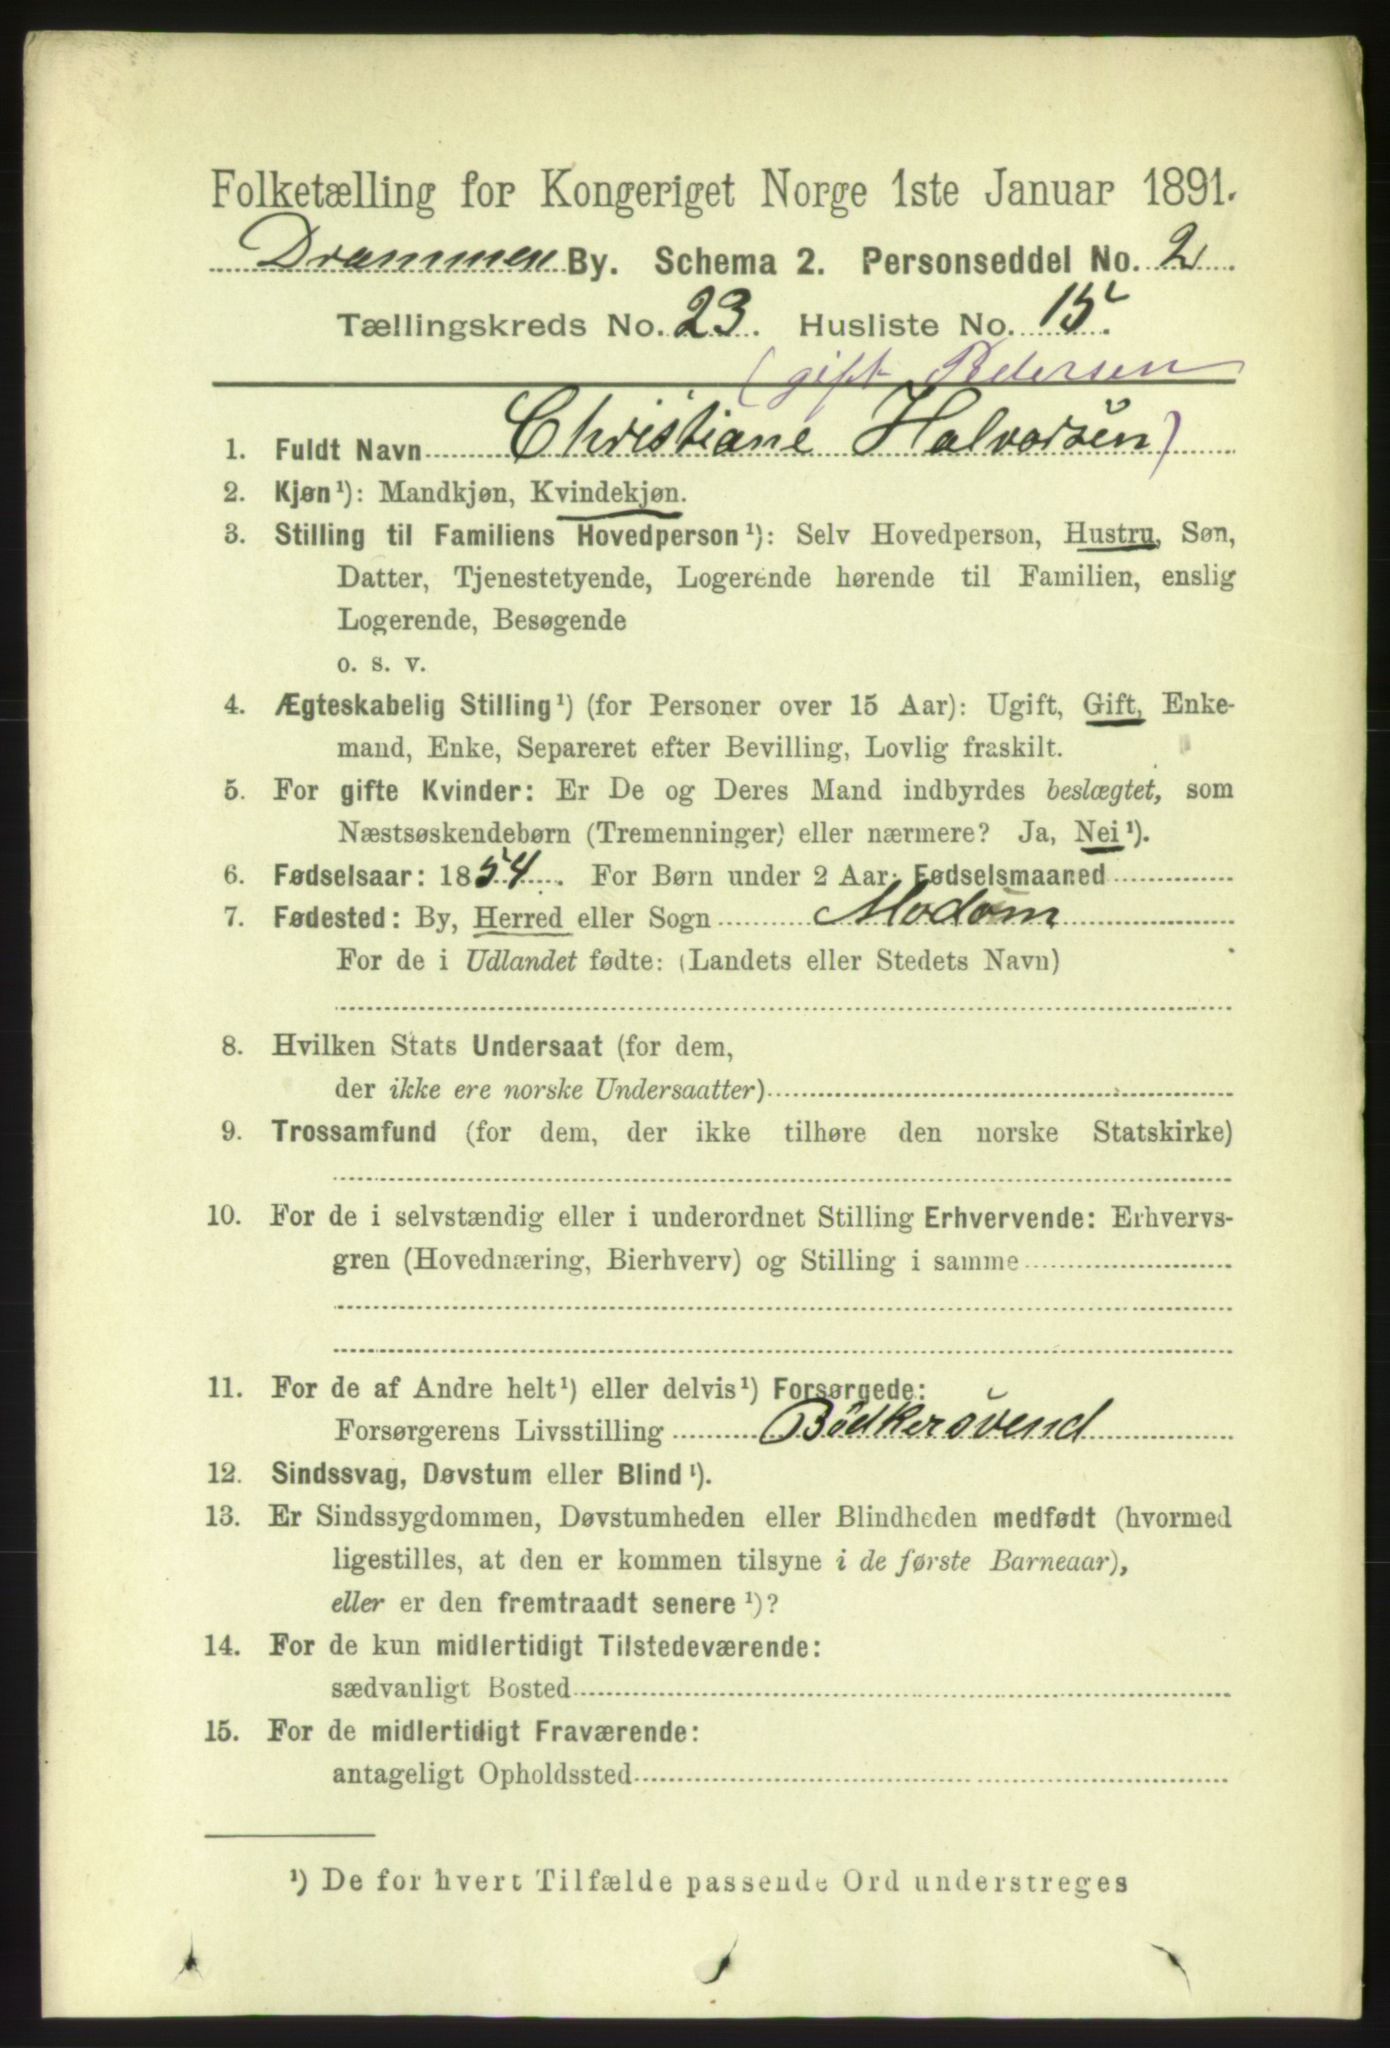 Folketælling for Kongeriget Norge 1ste Januar 1891.
Drammen By. Schema 2. Personseddel No. 2
Tællingskreds No. 23. Husliste No. 15.
(gift Pedersen
1. Fuldt Navn Christiane Halvorsen)
2. Kjøn¹): Mandkjøn, Kvindekjøn.
3. Stilling til Familiens Hovedperson¹): Selv Hovedperson, Hustru, Søn,
Datter, Tjenestetyende, Logerende hørende til Familien, enslig
Logerende, Besøgende
o. s. v.
4. Ægteskabelig Stilling¹) (for Personer over 15 Aar): Ugift, Gift, Enke-
mand, Enke, Separeret efter Bevilling, Lovlig fraskilt.
5. For gifte Kvinder: Er De og Deres Mand indbyrdes beslægtet, som
Næstsøskendebørn (Tremenninger) eller nærmere? Ja, Nei¹).
6. Fødselsaar: 1854. For Børn under 2 Aar: Fødselsmaaned
7. Fødested: By, Herred eller Sogn Modum
For de i Udlandet fødte: (Landets eller Stedets Navn)
8. Hvilken Stats Undersaat (for dem,
der ikke ere norske Undersaatter)
9. Trossamfund (for dem, der ikke tilhøre den norske Statskirke)
10. For de i selvstændig eller i underordnet Stilling Erhvervende: Erhvervs-
gren (Hovednæring, Bierhverv) og Stilling i samme
11. For de af Andre helt¹) eller delvis¹) Forsørgede:
Forsørgerens Livsstilling Bödkersvend
12. Sindssvag, Døvstum eller Blind¹).
13. Er Sindssygdommen, Døvstumheden eller Blindheden medfødt (hvormed
ligestilles, at den er kommen tilsyne i de første Barneaar),
eller er den fremtraadt senere¹)?
14. For de kun midlertidigt Tilstedeværende:
sædvanligt Bosted
15. For de midlertidigt Fraværende:
antageligt Opholdssted
¹) De for hvert Tilfælde passende Ord understreges